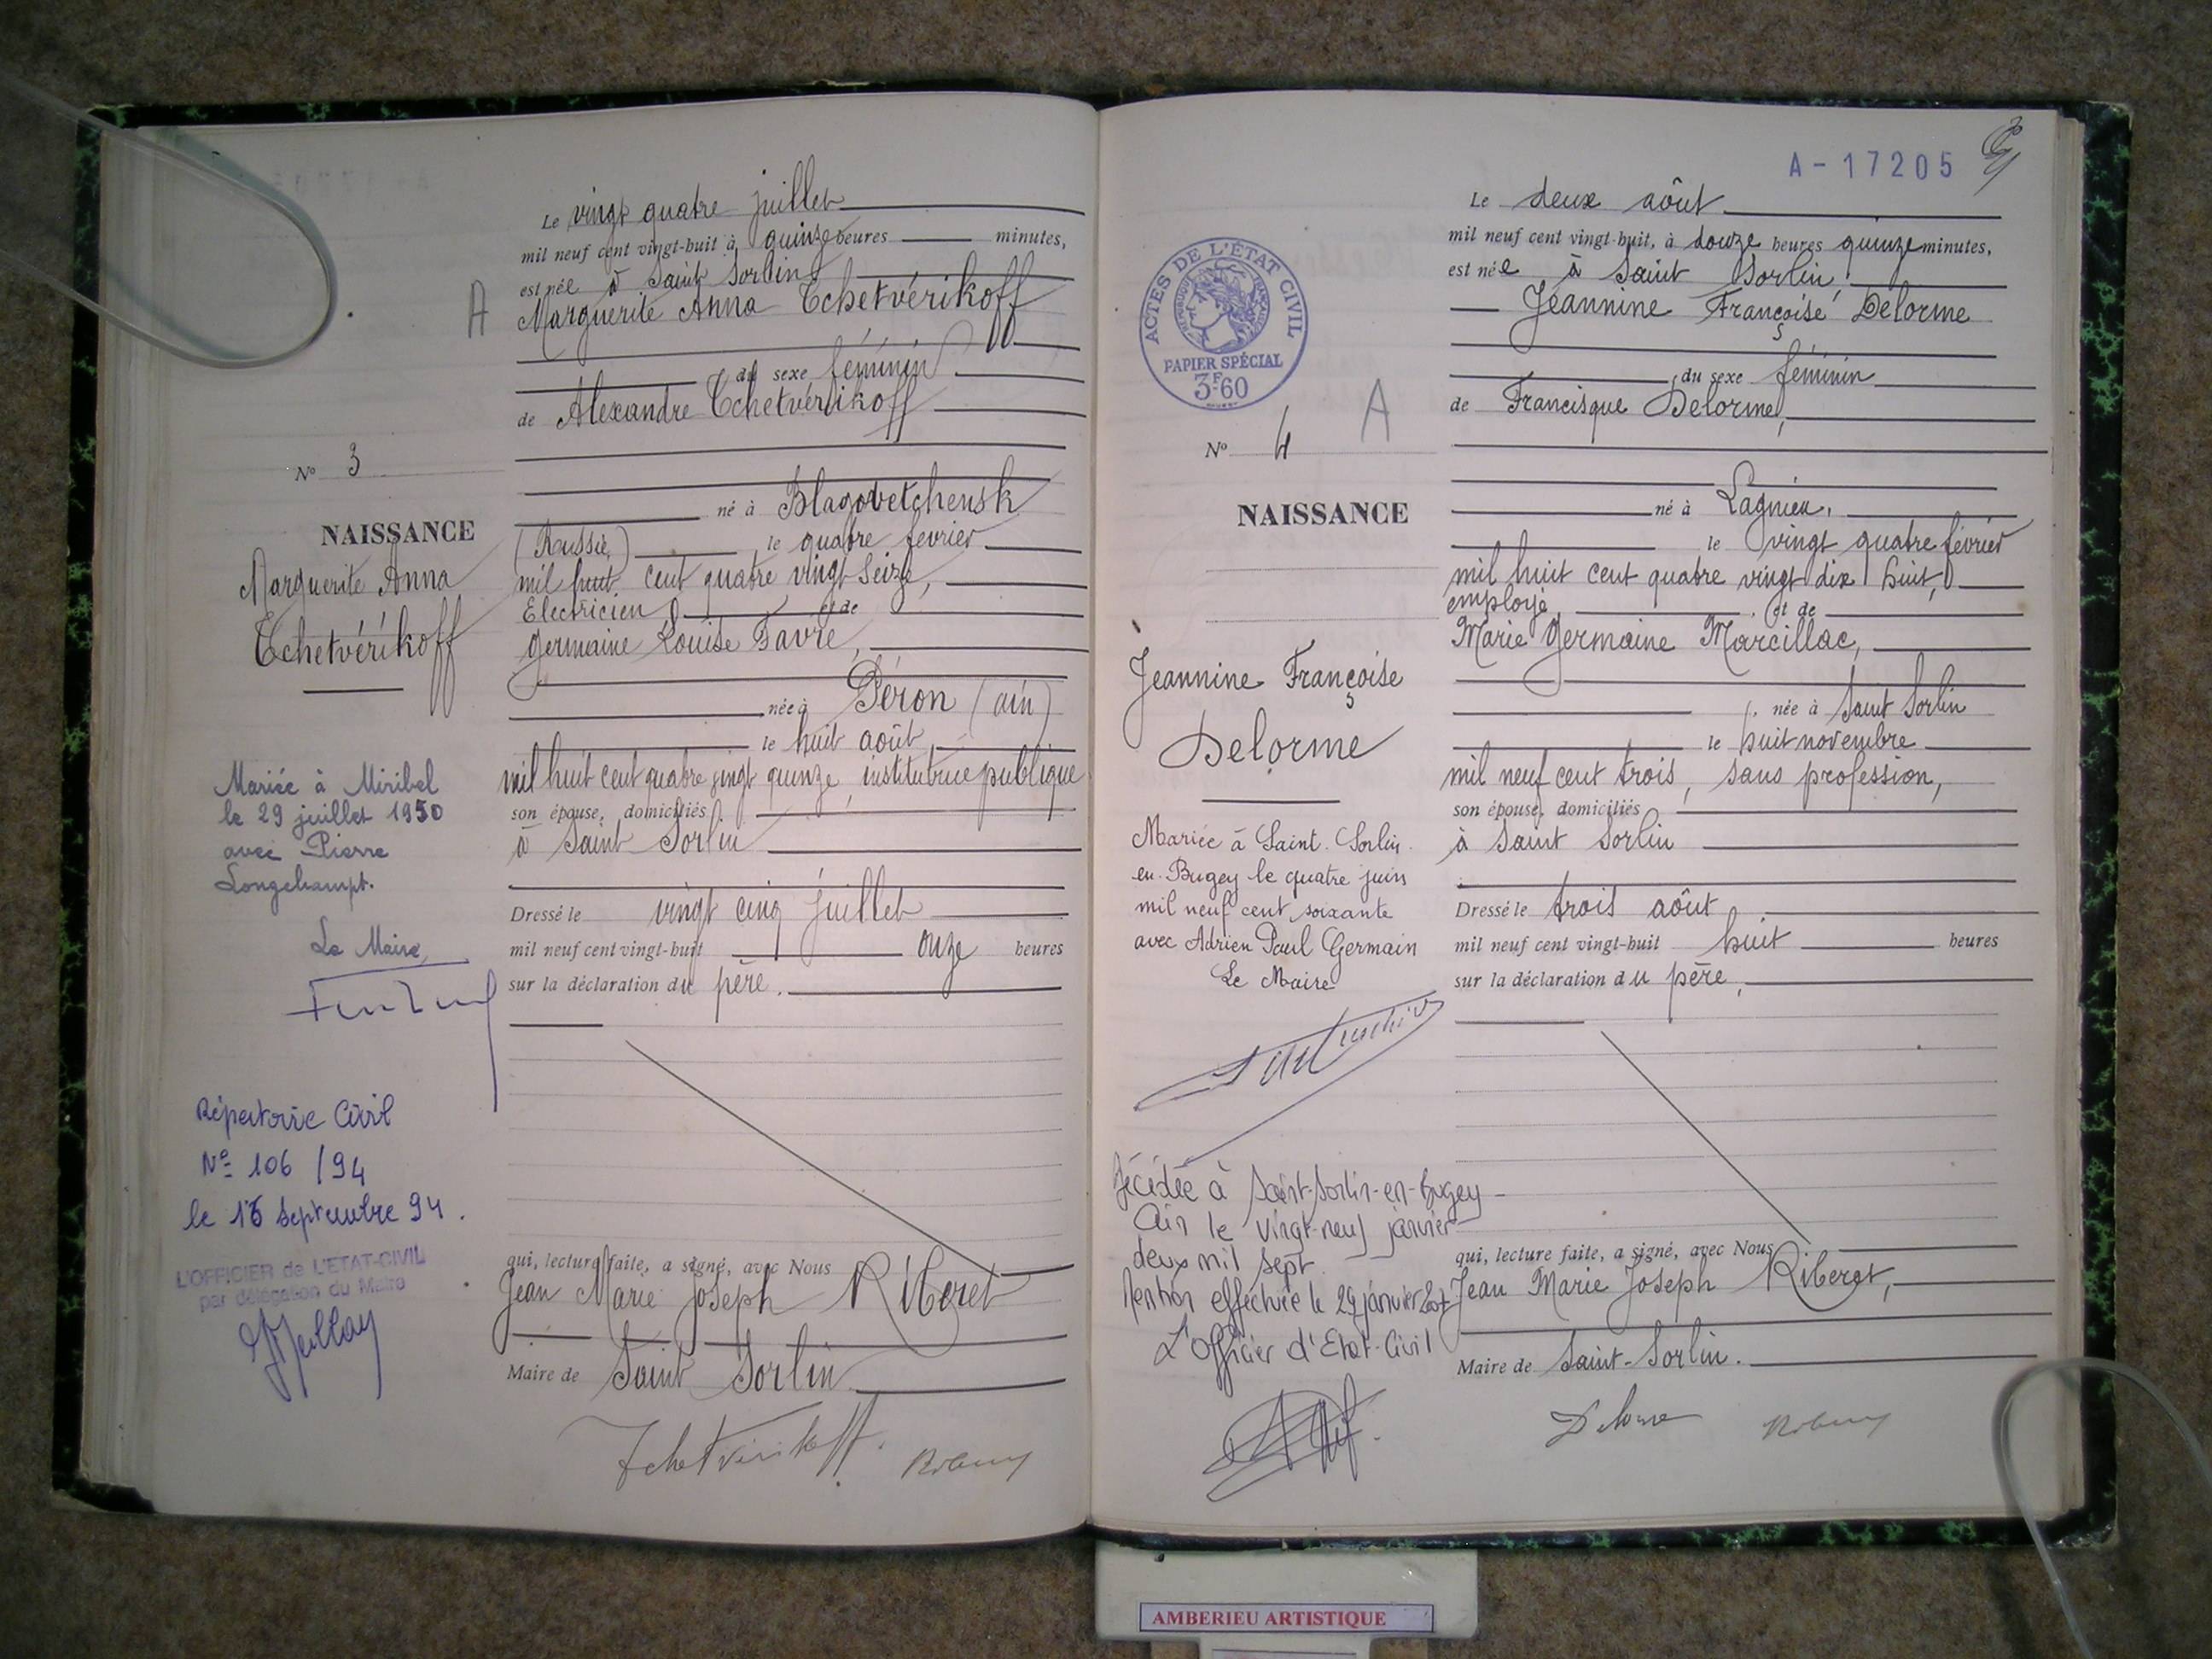 Le vingt quatre juillet
mil neuf cent vingt-huit à quinze heures minutes,
est née à Saint Sorlin
A
Marguerite Anna Tchetvérikoff
du sexe féminin
de Alexandre Tchetvérikoff
N° 3
né à Blagovetchensk
NAISSANCE
(Russie) , le quatre février
Marguerite Anna
Tchetvérikoff
mil huit cent quatre vingt seize,
Electricien et de
Germaine Louise Favre,
née à Péron (ain)
le huit août
mil huit cent quatre vingt quinze, institutrice publique
son épouse, domiciliés
à Saint Sorlin
Mariée à Miribel
le 29 juillet 1950
avec Pierre
Longchampt.
Le Maire,
Dressé le vingt cinq juillet
mil neuf cent vingt-huit onze heures
sur la déclaration du père.
Répertoire Civil
N° 106 /94
le 16 septembre 94.
L'OFFICIER de L'ETAT-CIVIL
par délégation du Maire
qui, lecture faite, a signé, avec Nous
Jean Marie Joseph Riberet
Maire de Saint Sorlin
Tchetvérikoff.
A-17205
Le deux août
mil neuf cent vingt-huit, à douze heures quinze minutes,
est née à Saint Sorlin,
Jeannine Françoise Delorme
du sexe féminin
de Francisque Delorme,
ACTES DE L'ÉTAT CIVIL
RÉPUBLIQUE FRANÇAISE
PAPIER SPÉCIAL
3F60
N° 4
A
NAISSANCE
Jeannine Françoise
Delorme
né à Lagnieu,
le vingt quatre février
mil huit cent quatre vingt dix huit,
employé, et de
Marie Germaine Marcillac,
, née à Saint Sorlin
le huit novembre
mil neuf cent trois, sans profession,
son épouse, domiciliés
à Saint Sorlin
Mariée à Saint-Sorlin-
en-Bugey le quatre juin
mil neuf cent soixante
avec Adrien Paul Germain
Le Maire
Dressé le trois août
mil neuf cent vingt-huit huit heures
sur la déclaration du père,
Décédée à Saint-Sorlin-en-Bugey
Ain le vingt-neuf janvier
deux mil sept.
Mention effectuée le 29 janvier 2007
L'Officier d'Etat-Civil
qui, lecture faite, a signé, avec Nous
Jean Marie Joseph Riberet,
Maire de Saint-Sorlin.
Delorme
AMBERIEU ARTISTIQUE